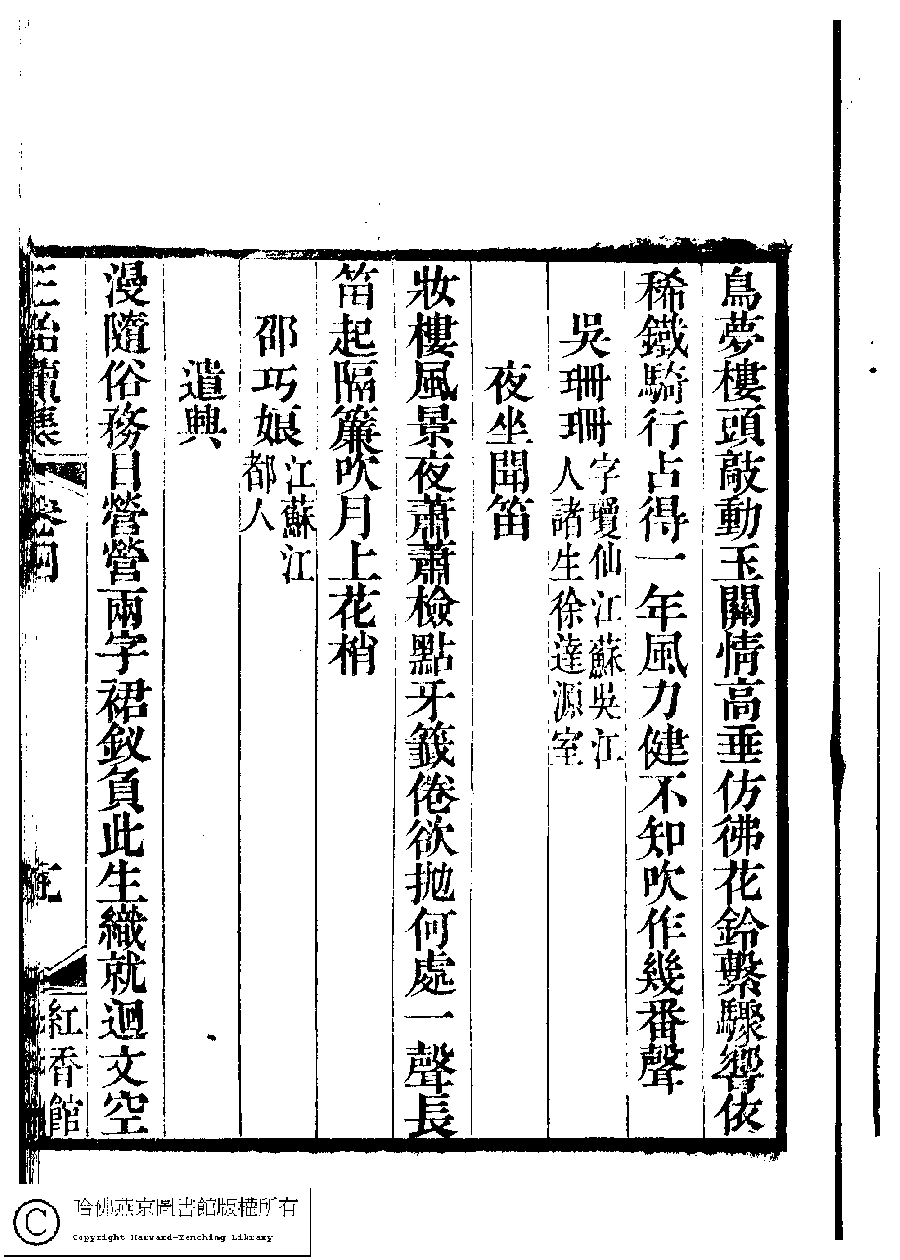 鳥夢樓頭敲動玉關情高垂仿彿花鈴繫驟響依
稀鐵騎行占得一年風力健不知吹作幾番聲
吳珊珊字瓊仙江蘇吳江
人諸生徐達源室
夜坐聞笛
妝樓風景夜蕭蕭檢點牙籤倦欲拋何處一聲長
笛起隔簾吹月上花梢
邵巧娘江蘇江
都人
遣興
漫隨俗務日營營兩字裙釵負此生織就迴文空
卷四
紅香館
哈佛燕京圖書館版權所有
Copyright Harvard-Yenching Library